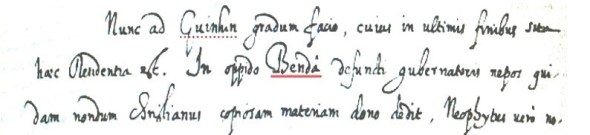 Nunc ad Quinhin gradum facio, cuius in ultimis finibus sita
haec Residentia est. In oppido Bendà defuncti gubernatoris nepos qui-
dam nondum Christianus copiosam materiam dono dedit, Neophytus vero no-